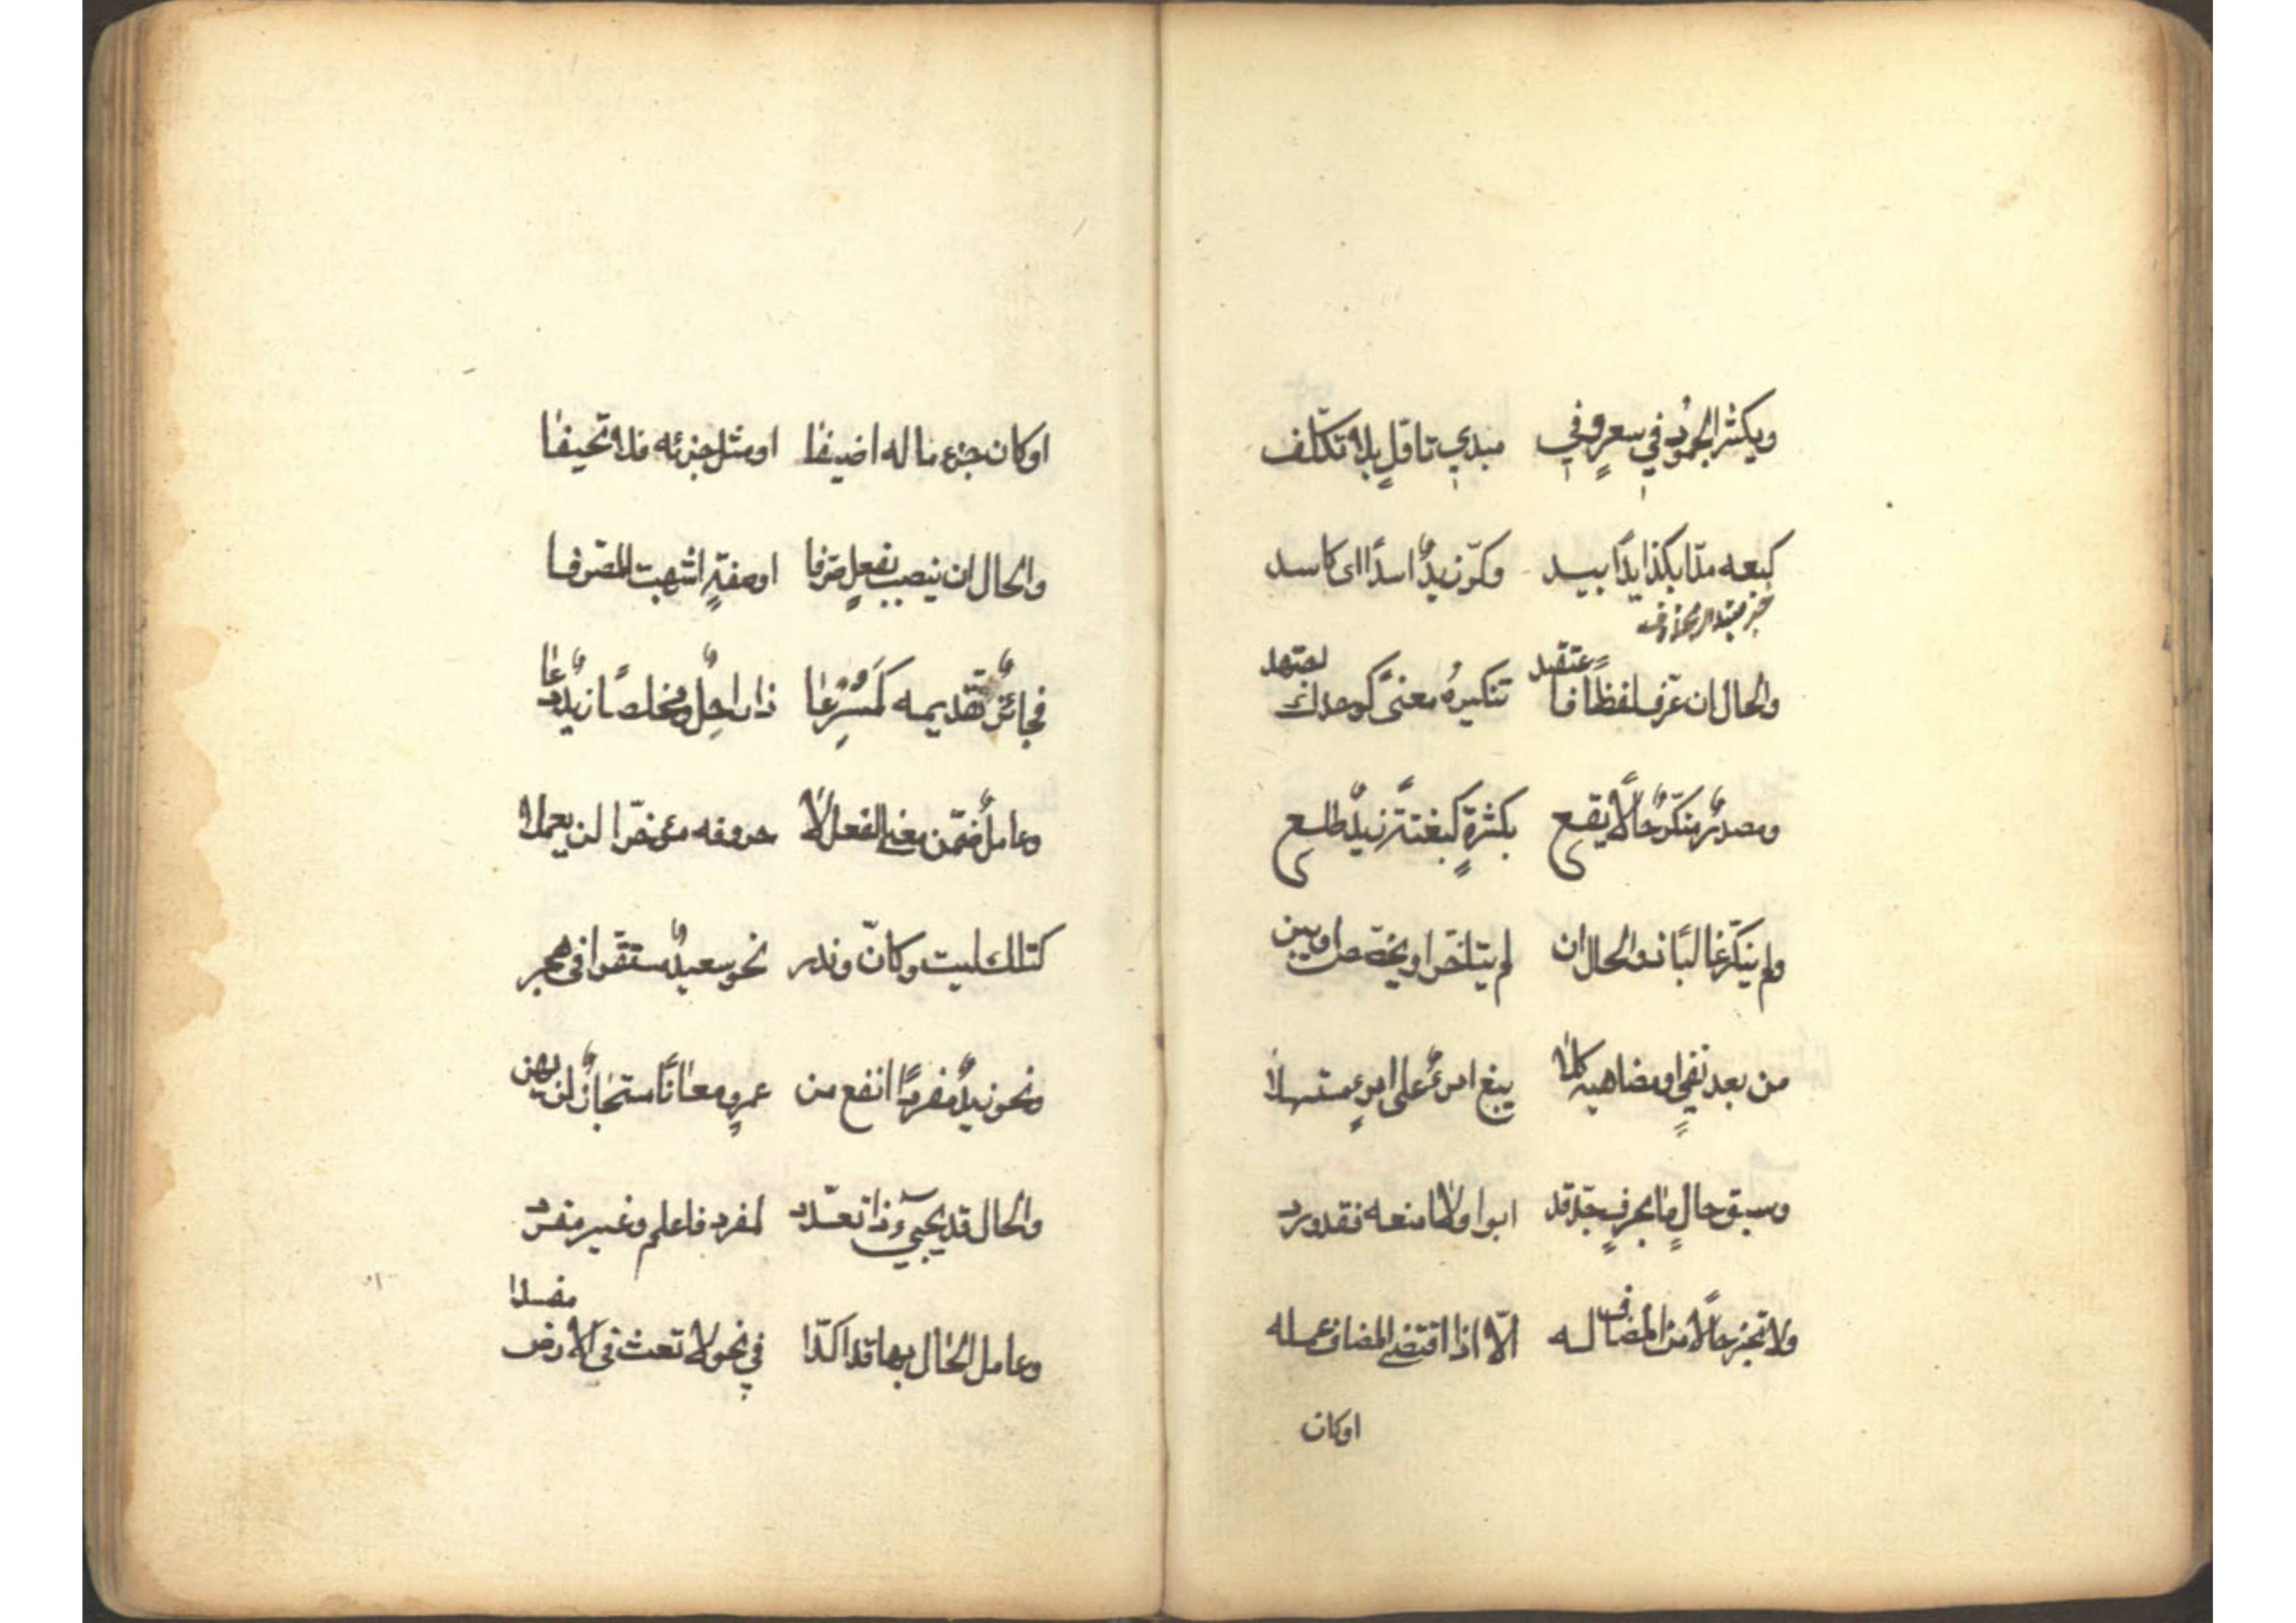 ويكثر الجمودُ في سعرٍ وفي مبدي تاوّلٍ بلا تكلّف
كبعه مدّا بكذا يدًا بيد وكرّ زيدٌ اسدًا اى كاسد
خبر مبتدا محذوف
والحال ان عرّف لفظا فاعتقد تنكيرهُ معنىً كوحدك اجتهد
ومصدرٌ منكّرٌ حالًا يقع بكثرةٍ كبغتةً زيدٌ طلع
ولم ينكّر غالبًا ذو الحال ان لم يتاخّر او يخصّص او يبن
من بعد نفيٍ او مضاهيه كلا يبغ امرءٌ على امرءٍ مستسهلا
وسبق حالٍ ما بحرفٍ جرّ قد ابوا ولا امنعه فقد ورد
ولا تجز حالًا من المضاف له الّا اذا اقتضى المضاف عمله
اوكان
او كان جزء ما له اضيفا او مثل جزئه فلا تحيفا
والحال ان ينصب بفعلٍ صرّفا او صفةٍ اشبهت المصرّفا
فجائزٌ تقديمه كمُسْرِعا ذا راحلٌ ومخلصًا زيدٌ دعا
وعاملٌ ضمّن معنى الفعل لا حروفه مؤخّرا لن يعملا
كتلك ليت وكانّ وندر نحو سعيدٌ مستقرّا في هجر
ونحو زيدٌ مفردًا انفع من عمرٍو معانًا مستجازٌ لن يهن
والحال قد يجيئ ذا تعدّد لمفرد فاعلم وغير مفرد
وعامل الحال بها قد اكّدا في نحو لا تعث في الارض مفسدا